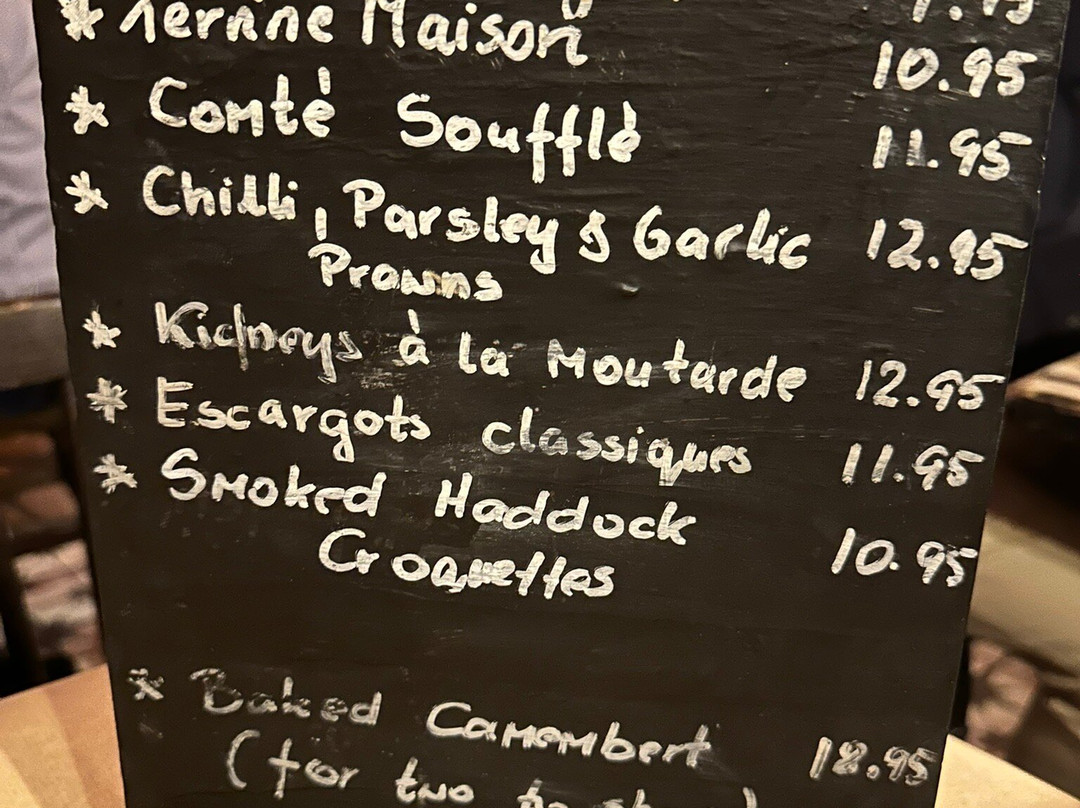 * Terrine Maison 10.95
* Comté Soufflé 11.95
* Chilli, Parsley & Garlic 12.95
Prawns
* Kidneys à la Moutarde 12.95
* Escargots classiques 11.95
* Smoked Haddock
Croquettes 10.95
* Baked Camembert 18.95
(for two to share)